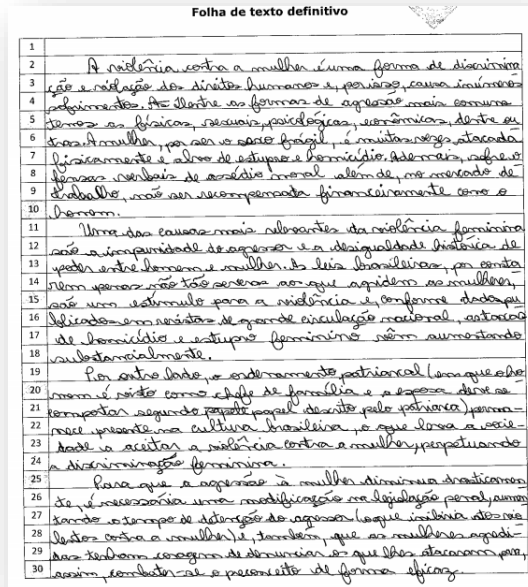 Folha de texto definitivo
1
2 A violência contra a mulher é uma forma de discrimina
3 ção e violação dos direitos humanos e, por isso, causa inúmeros
4 sofrimentos. As dentre as formas de agressão mais comuns
5 temos as físicas, sexuais, psicológicas, econômicas, dentre ou
6 tras. A mulher, por ser o sexo frágil, é muitas vezes atacada
7 fisicamente e alvo de estupro e homicídio. Ademais, sofre o
8 fensas verbais de assédio moral alem de, no mercado de
9 trabalho, não ser recompensada financeiramente como o
10 homem.
11 Uma das causas mais relevantes da violência feminina
12 são a impunidade do agressor e a desigualdade histórica de
13 poder entre homem e mulher. As leis brasileiras, por conte
14 rem penas não tão severas aos que agridem as mulheres,
15 são um estímulo para a violência e, conforme dados pu
16 blicados em revistas de grande circulação nacional, as taxas
17 de homicídio e estupro feminino vêm aumentando
18 substancialmente.
19 Por outro lado, o ordenamento patriarcal (em que o ho
20 mem é visto como chefe de família e a esposa deve se
21 comportar segundo papel descrito pelo patriarca), perma-
22 nece presente na cultura brasileira, o que leva a socie-
23 dade a aceitar a violência contra a mulher, perpetuando
24 a discriminação feminina.
25 Para que a agressão à mulher diminua drasticamen
26 te, é necessária uma modificação na legislação penal, aumen
27 tando o tempo de detenção do agressor (o que inibiria atos vio
28 lentos contra a mulher) e, também, que as mulheres agredi-
29 das tenham coragem de denunciar os que lhes atacaram para,
30 assim, combater-se o preconceito de forma eficaz.